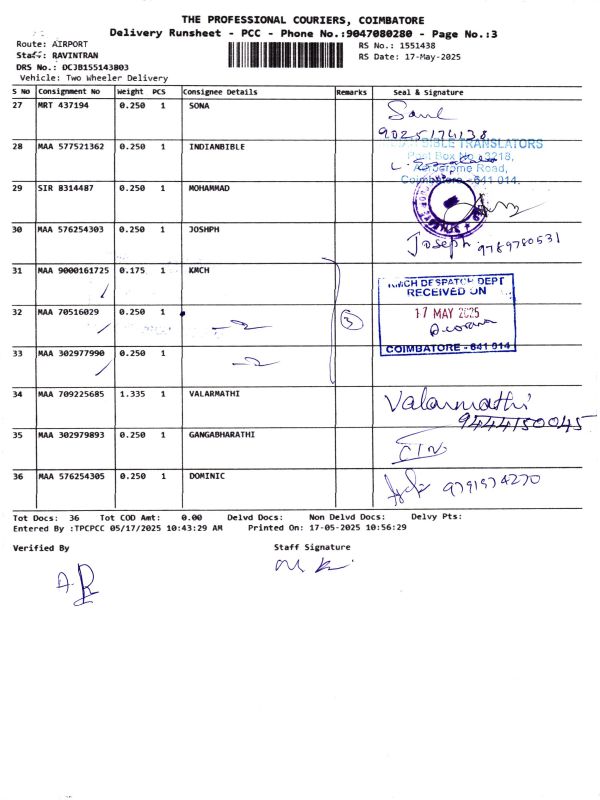 THE PROFESSIONAL COURIERS, COIMBATORE
Delivery Runsheet - PCC - Phone No.:9047080280 - Page No.:3
Route: AIRPORT
RS No.: 1551438
Staff: RAVINTRAN
RS Date: 17-May-2025
DRS No.: DCJB155143803
Vehicle: Two Wheeler Delivery
S No Consignment No Weight PCS Consignee Details Remarks Seal & Signature
27 MRT 437194 0.250 1 SONA
9025174138
28 MAA 577521362 0.250 1 INDIANBIBLE
BIBLE TRANSLATORS
Post Box No 3218,
Road,
Coimbatore - 641 014.
29 SIR 8314487 0.250 1 MOHAMMAD
30 MAA 576254303 0.250 1 JOSHPH
Joseph 9789780531
31 MAA 9000161725 0.175 1 KMCH
KMCH DESPATCH DEPT
RECEIVED ON
32 MAA 70516029 0.250 1
3
17 MAY 2025
33 MAA 302977990 0.250 1
COIMBATORE - 641 014
34 MAA 709225685 1.335 1 VALARMATHI
Valarmathi
9444150045
35 MAA 302979893 0.250 1 GANGABHARATHI
36 MAA 576254305 0.250 1 DOMINIC
9791974270
Tot Docs: 36 Tot COD Amt: 0.00 Delvd Docs: Non Delvd Docs: Delvy Pts:
Entered By :TPCPCC 05/17/2025 10:43:29 AM Printed On: 17-05-2025 10:56:29
Verified By
Staff Signature